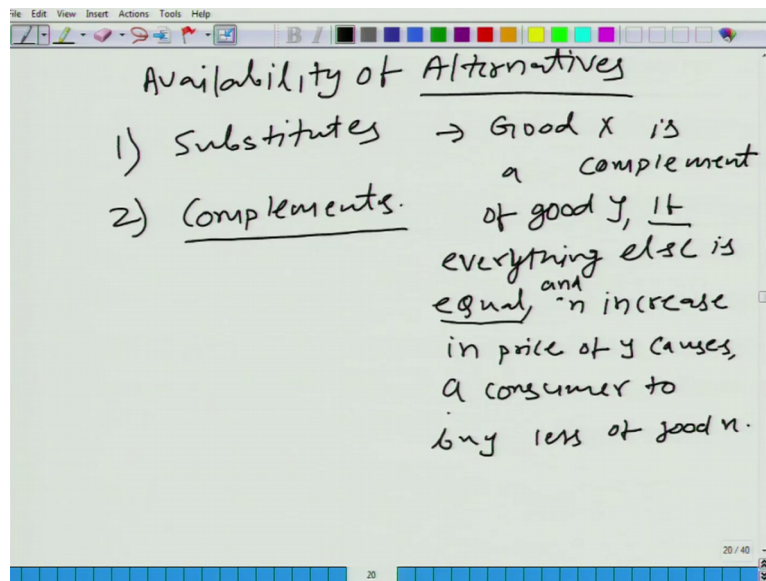 File Edit View Insert Actions Tools Help
B I
Availability of Alternatives
1) Substitutes → Good X is
a complement
2) Complements. of good y, If
everything else is
and
equal, 'n increase
in price of y causes,
a consumer to
buy less of good x.
20 / 40
20